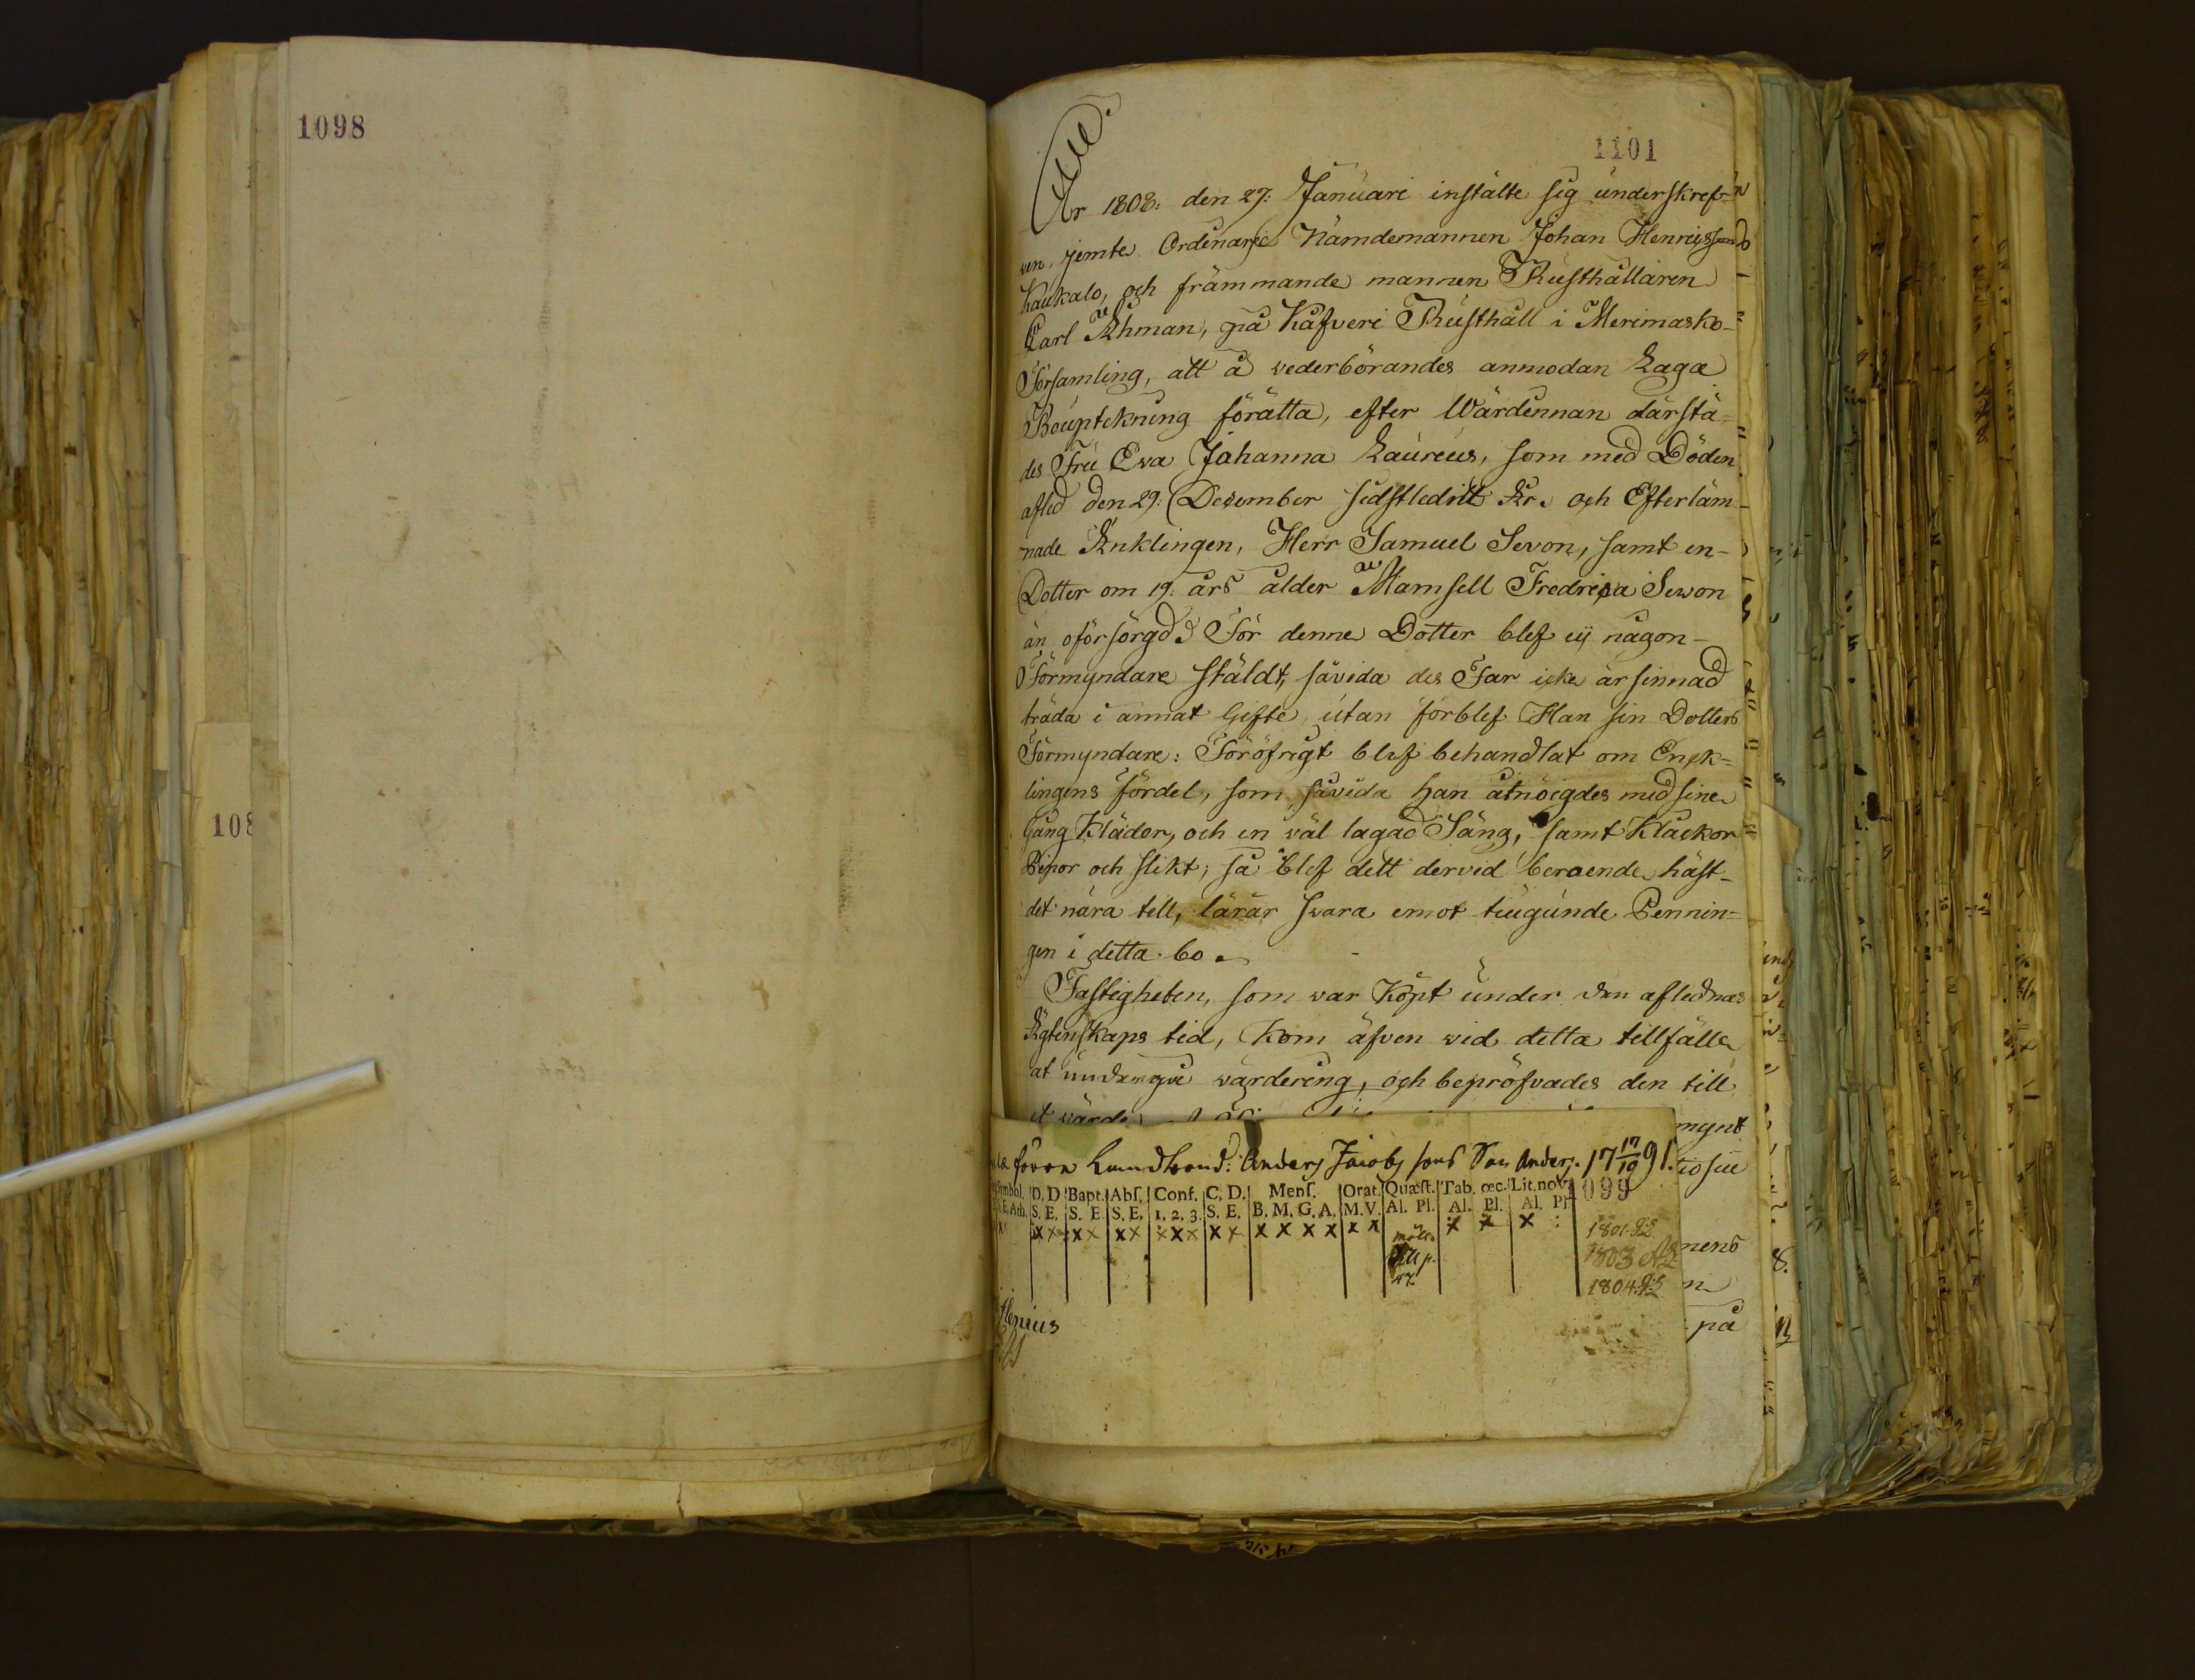 1098
108
1101
År 1808: den 27: Januari instälte sig underskref-
ven, jemte Ordinarie Nämdemannen Johan Henricsson
Kaukalo, och främmande mannen Rusthållaren
Carl Åhman, på Käfveri Rusthåll i Merimasko-
Församling, att å vederbörandes anmodan Laga
Bouptekning förätta, efter Wärdinnan därstä-
des Fru Eva Johanna Laureus, som med Döden
afled den 29: December sidstledit År. och Efterläm-
nade Änklingen, Herr Samuel Sevon, samt en-
Dotter om 19: års ålder Mamsell Fredrica Sewon
än oförsörgd. För denne Dotter blef ej någon-
Förmyndare stäldt, såvida des Far icke är sinnad
träda i annat Gifte, utan förblef Han sin Dotters
Förmyndare: Föröfrigt blef behandlat om Enck=
lingens fördel, som såvida han åtnöigdes med sine
Gång Kläder, och en väl lagad Säng, samt Klackor
Pipor och slikt; så blef dett dervid beroende, häst-
det nära till, lärar swara emot tiugunde Pennin=
gen i detta bo.
Fastigheten, som war Köpt under den aflednas
Ägtenskaps tid, Kom äfven wid detta tillfälle
at undergå wärdering, och bepröfvades den till
et värde
mynt
tiosju
nens
på
Lundbond: Anders Jacobs sons Son Anders. 17 17/19 91.
1099
Symbol. D. D Bapt. Abs. Conf. C. D. Mens. Orat. Quæst. Tab. œc. Lit. nov
S. E. Ath. S. E. S. E. S. E. 1. 2. 3. S. E. B. M. G. A. M. V. Al. Pl. Al. Pl. Al. Pl
x x x x x x x x x x x x x x x x x x x x x
1801.
1803
1804.